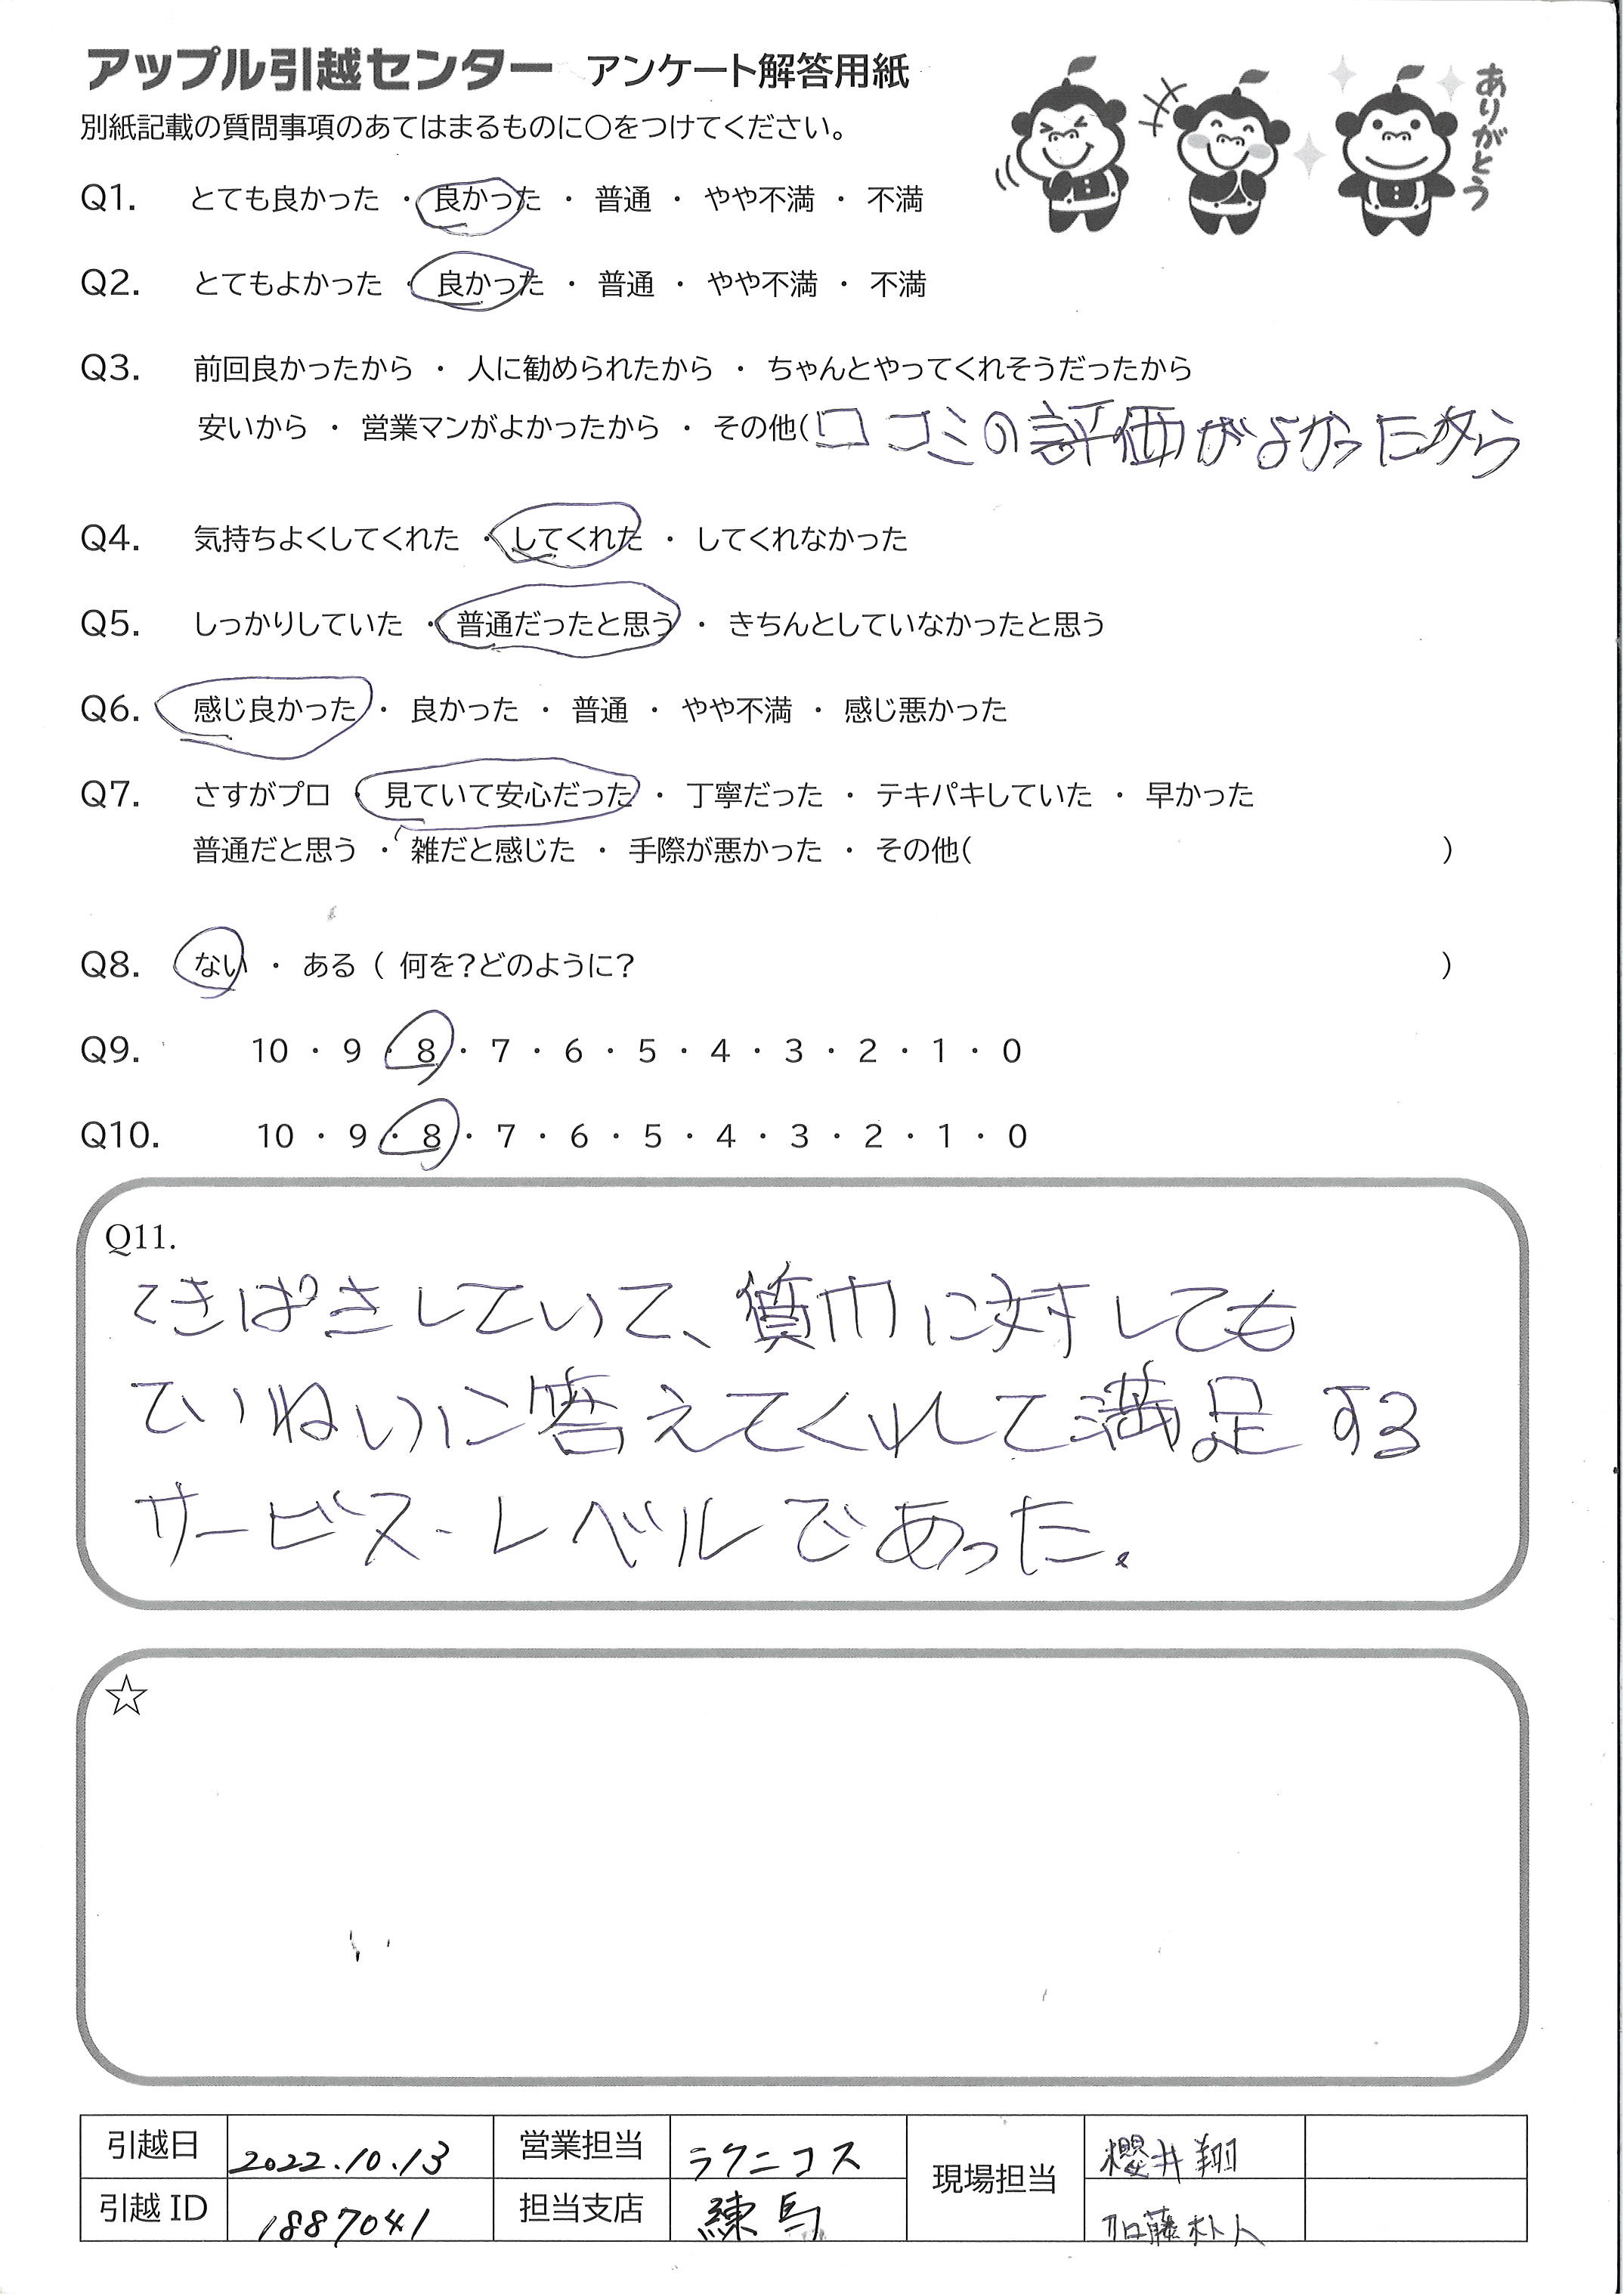 アップル引越センター アンケート解答用紙
ありがとう
別紙記載の質問事項のあてはまるものに○をつけてください。
Q1. とても良かった ・ 良かった ・ 普通 ・ やや不満 ・ 不満
Q2. とてもよかった ・ 良かった ・ 普通 ・ やや不満 ・ 不満
Q3. 前回良かったから ・ 人に勧められたから ・ ちゃんとやってくれそうだったから
安いから ・ 営業マンがよかったから ・ その他(口コミの評価がよかったから
Q4. 気持ちよくしてくれた ・ してくれた ・ してくれなかった
Q5. しっかりしていた ・ 普通だったと思う ・ きちんとしていなかったと思う
Q6. 感じ良かった ・ 良かった ・ 普通 ・ やや不満 ・ 感じ悪かった
Q7. さすがプロ ・ 見ていて安心だった ・ 丁寧だった ・ テキパキしていた ・ 早かった
普通だと思う ・ 雑だと感じた ・ 手際が悪かった ・ その他( )
Q8. ない ・ ある ( 何を?どのように? )
Q9. 10 ・ 9 ・ 8 ・ 7 ・ 6 ・ 5 ・ 4 ・ 3 ・ 2 ・ 1 ・ 0
Q10. 10 ・ 9 ・ 8 ・ 7 ・ 6 ・ 5 ・ 4 ・ 3 ・ 2 ・ 1 ・ 0
Q11.
てきぱきしていて、質問に対しても
ていねいに答えてくれして満足する
サービス・レベルであった。
☆
引越日 2022.10.13 営業担当 ラクニコス 現場担当 櫻井翔
引越 ID 1887041 担当支店 練馬 加藤朴人